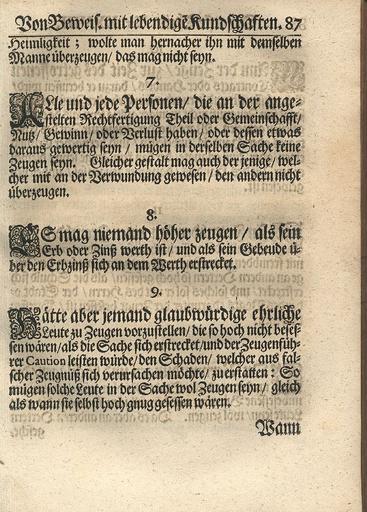 Von Beweis. mit lebendigē Kundschafften. 87
Heimligkeit; wolte man hernacher ihn mit demselben
Manne überzeugen/ das mag nicht seyn.
7.
ALle und jede Personen/ die an der ange-
stelten Rechtfertigung Theil oder Gemeinschafft/
Nutz/ Gewinn/ oder Verlust haben/ oder dessen etwas
daraus gewertig seyn/ mügen in derselben Sache keine
Zeugen seyn. Gleicher gestalt mag auch der jenige/ wel-
cher mit an der Verwundung gewesen/ den andern nicht
überzeugen.
8.
ES mag niemand höher zeugen/ als sein
Erb oder Zinß werth ist/ und als sein Gebeude ü-
ber den Erbzinß sich an dem Werth erstrecket.
9.
Hätte aber jemand glaubwürdige ehrliche
Leute zu Zeugen vorzustellen/ die so hoch nicht beses-
sen wären/ als die Sache sich erstrecket/ und der Zeugenfüh-
rer Caution leisten würde/ den Schaden/ welcher aus fal-
scher Zeugnüß sich verursachen möchte/ zu erstatten: So
mügen solche Leute in der Sache wol Zeugen seyn/ gleich
als wann sie selbst hoch gnug gesessen wären.
Wann